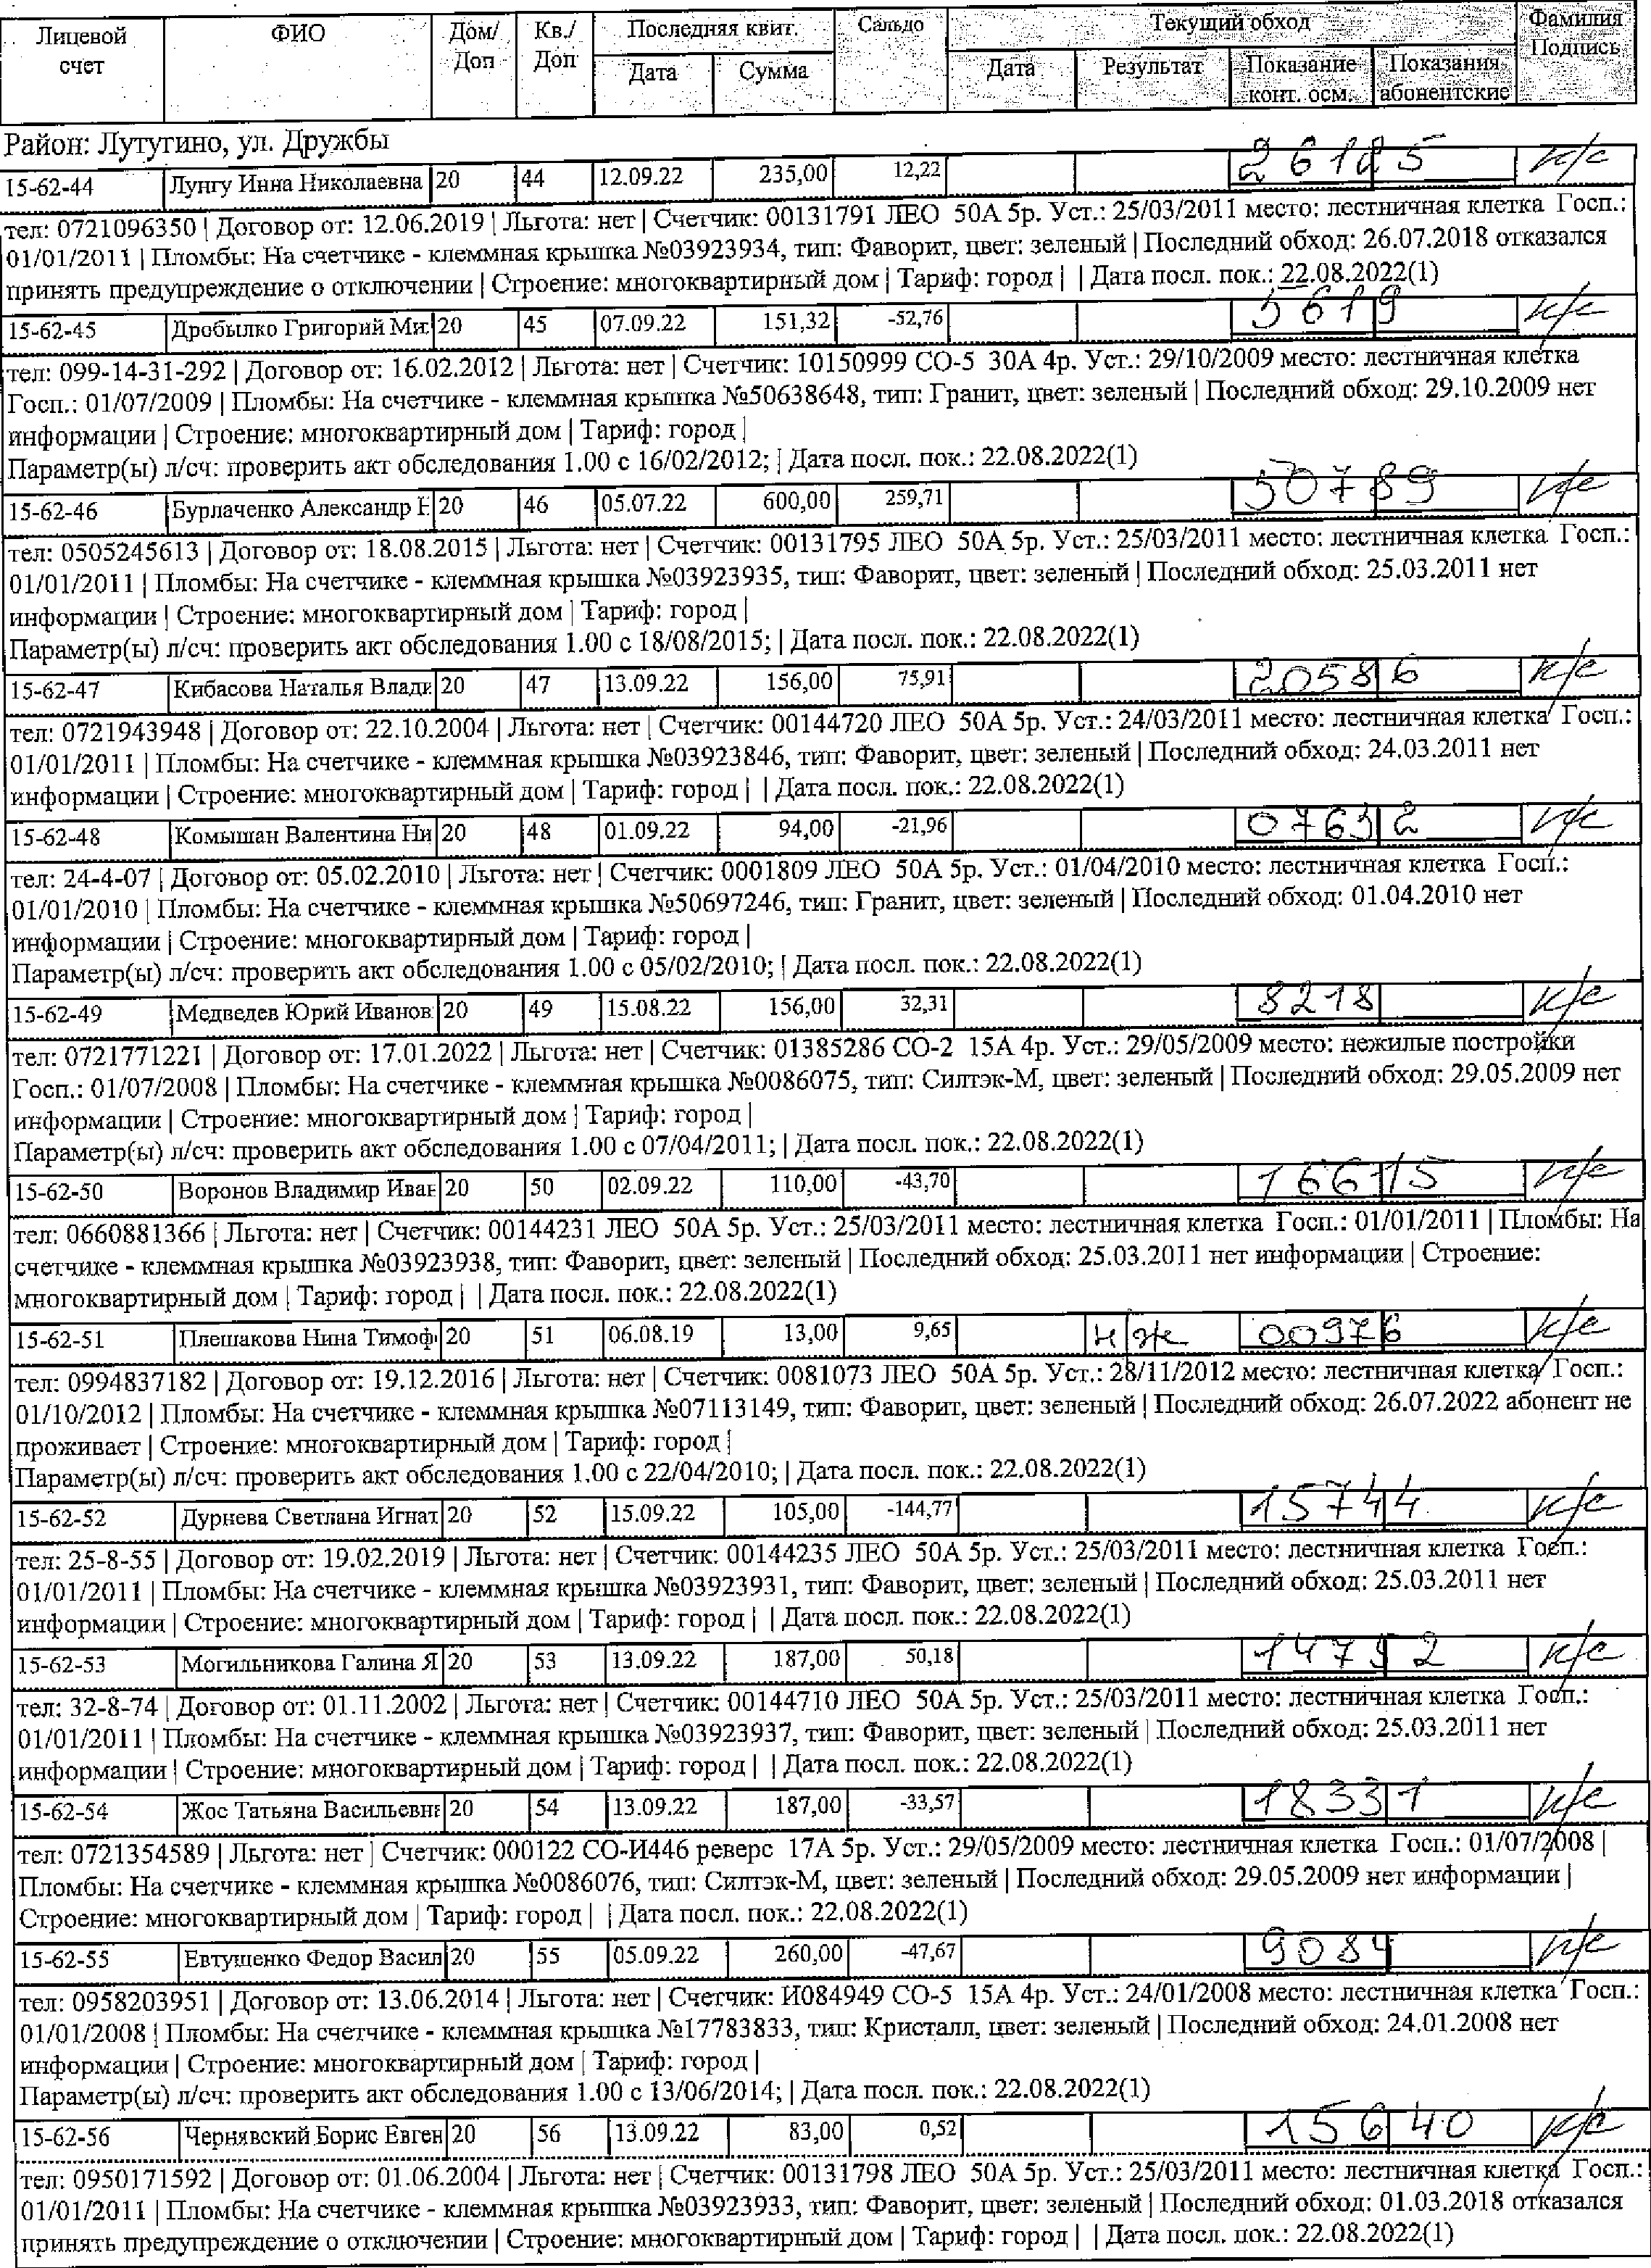 Лицевой счет ФИО Дом/ Доп Кв./ Доп Последняя квит. Сальдо Текущий обход Фамилия Подпись
Дата Сумма Дата Результат Показание конт. осм. Показания абонентские
Район: Лутугино, ул. Дружбы
15-62-44 Лунгу Инна Николаевна 20 44 12.09.22 235,00 12,22 к/с
тел: 0721096350 | Договор от: 12.06.2019 | Льгота: нет | Счетчик: 00131791 ЛЕО 50А 5р. Уст.: 25/03/2011 место: лестничная клетка Госп.:
01/01/2011 | Пломбы: На счетчике - клеммная крышка №03923934, тип: Фаворит, цвет: зеленый | Последний обход: 26.07.2018 отказался
принять предупреждение о отключении | Строение: многоквартирный дом | Тариф: город | | Дата посл. пок.: 22.08.2022(1)
15-62-45 Дробылко Григорий Ми 20 45 07.09.22 151,32 -52,76 5619 к/с
тел: 099-14-31-292 | Договор от: 16.02.2012 | Льгота: нет | Счетчик: 10150999 СО-5 30А 4р. Уст.: 29/10/2009 место: лестничная клетка
Госп.: 01/07/2009 | Пломбы: На счетчике - клеммная крышка №50638648, тип: Гранит, цвет: зеленый | Последний обход: 29.10.2009 нет
информации | Строение: многоквартирный дом | Тариф: город |
Параметр(ы) л/сч: проверить акт обследования 1.00 с 16/02/2012; | Дата посл. пок.: 22.08.2022(1)
15-62-46 Бурлаченко Александр 20 46 05.07.22 600,00 259,71 30789 к/с
тел: 0505245613 | Договор от: 18.08.2015 | Льгота: нет | Счетчик: 00131795 ЛЕО 50А 5р. Уст.: 25/03/2011 место: лестничная клетка Госп.:
01/01/2011 | Пломбы: На счетчике - клеммная крышка №03923935, тип: Фаворит, цвет: зеленый | Последний обход: 25.03.2011 нет
информации | Строение: многоквартирный дом | Тариф: город |
Параметр(ы) л/сч: проверить акт обследования 1.00 с 18/08/2015; | Дата посл. пок.: 22.08.2022(1)
15-62-47 Кибасова Наталья Влади 20 47 13.09.22 156,00 75,91 20586 к/с
тел: 0721943948 | Договор от: 22.10.2004 | Льгота: нет | Счетчик: 00144720 ЛЕО 50А 5р. Уст.: 24/03/2011 место: лестничная клетка Госп.:
01/01/2011 | Пломбы: На счетчике - клеммная крышка №03923846, тип: Фаворит, цвет: зеленый | Последний обход: 24.03.2011 нет
информации | Строение: многоквартирный дом | Тариф: город | | Дата посл. пок.: 22.08.2022(1)
15-62-48 Комышан Валентина Ни 20 48 01.09.22 94,00 -21,96 07632 к/с
тел: 24-4-07 | Договор от: 05.02.2010 | Льгота: нет | Счетчик: 0001809 ЛЕО 50А 5р. Уст.: 01/04/2010 место: лестничная клетка Госп.:
01/01/2010 | Пломбы: На счетчике - клеммная крышка №50697246, тип: Гранит, цвет: зеленый | Последний обход: 01.04.2010 нет
информации | Строение: многоквартирный дом | Тариф: город |
Параметр(ы) л/сч: проверить акт обследования 1.00 с 05/02/2010; | Дата посл. пок.: 22.08.2022(1)
15-62-49 Медведев Юрий Иванов 20 49 15.08.22 156,00 32,31 8218 к/с
тел: 0721771221 | Договор от: 17.01.2022 | Льгота: нет | Счетчик: 01385286 СО-2 15А 4р. Уст.: 29/05/2009 место: нежилые постройки
Госп.: 01/07/2008 | Пломбы: На счетчике - клеммная крышка №0086075, тип: Силтэк-М, цвет: зеленый | Последний обход: 29.05.2009 нет
информации | Строение: многоквартирный дом | Тариф: город |
Параметр(ы) л/сч: проверить акт обследования 1.00 с 07/04/2011; | Дата посл. пок.: 22.08.2022(1)
15-62-50 Воронов Владимир Иван 20 50 02.09.22 110,00 -43,70 16615 к/с
тел: 0660881366 | Льгота: нет | Счетчик: 00144231 ЛЕО 50А 5р. Уст.: 25/03/2011 место: лестничная клетка Госп.: 01/01/2011 | Пломбы: На
счетчике - клеммная крышка №03923938, тип: Фаворит, цвет: зеленый | Последний обход: 25.03.2011 нет информации | Строение:
многоквартирный дом | Тариф: город | | Дата посл. пок.: 22.08.2022(1)
15-62-51 Плешакова Нина Тимоф 20 51 06.08.19 13,00 9,65 н/ж 00976 к/с
тел: 0994837182 | Договор от: 19.12.2016 | Льгота: нет | Счетчик: 0081073 ЛЕО 50А 5р. Уст.: 28/11/2012 место: лестничная клетка Госп.:
01/10/2012 | Пломбы: На счетчике - клеммная крышка №07113149, тип: Фаворит, цвет: зеленый | Последний обход: 26.07.2022 абонент не
проживает | Строение: многоквартирный дом | Тариф: город |
Параметр(ы) л/сч: проверить акт обследования 1.00 с 22/04/2010; | Дата посл. пок.: 22.08.2022(1)
15-62-52 Дурнева Светлана Игнат 20 52 15.09.22 105,00 -144,77 15744 к/с
тел: 25-8-55 | Договор от: 19.02.2019 | Льгота: нет | Счетчик: 00144235 ЛЕО 50А 5р. Уст.: 25/03/2011 место: лестничная клетка Госп.:
01/01/2011 | Пломбы: На счетчике - клеммная крышка №03923931, тип: Фаворит, цвет: зеленый | Последний обход: 25.03.2011 нет
информации | Строение: многоквартирный дом | Тариф: город | | Дата посл. пок.: 22.08.2022(1)
15-62-53 Могильникова Галина Я 20 53 13.09.22 187,00 50,18 к/с
тел: 32-8-74 | Договор от: 01.11.2002 | Льгота: нет | Счетчик: 00144710 ЛЕО 50А 5р. Уст.: 25/03/2011 место: лестничная клетка Госп.:
01/01/2011 | Пломбы: На счетчике - клеммная крышка №03923937, тип: Фаворит, цвет: зеленый | Последний обход: 25.03.2011 нет
информации | Строение: многоквартирный дом | Тариф: город | | Дата посл. пок.: 22.08.2022(1)
15-62-54 Жос Татьяна Васильевн 20 54 13.09.22 187,00 -33,57 18331 к/с
тел: 0721354589 | Льгота: нет | Счетчик: 000122 СО-И446 реверс 17А 5р. Уст.: 29/05/2009 место: лестничная клетка Госп.: 01/07/2008 |
Пломбы: На счетчике - клеммная крышка №0086076, тип: Силтэк-М, цвет: зеленый | Последний обход: 29.05.2009 нет информации |
Строение: многоквартирный дом | Тариф: город | | Дата посл. пок.: 22.08.2022(1)
15-62-55 Евтушенко Федор Васил 20 55 05.09.22 260,00 -47,67 9084 к/с
тел: 0958203951 | Договор от: 13.06.2014 | Льгота: нет | Счетчик: И084949 СО-5 15А 4р. Уст.: 24/01/2008 место: лестничная клетка Госп.:
01/01/2008 | Пломбы: На счетчике - клеммная крышка №17783833, тип: Кристалл, цвет: зеленый | Последний обход: 24.01.2008 нет
информации | Строение: многоквартирный дом | Тариф: город |
Параметр(ы) л/сч: проверить акт обследования 1.00 с 13/06/2014; | Дата посл. пок.: 22.08.2022(1)
15-62-56 Чернявский Борис Евген 20 56 13.09.22 83,00 0,52 15640 к/с
тел: 0950171592 | Договор от: 01.06.2004 | Льгота: нет | Счетчик: 00131798 ЛЕО 50А 5р. Уст.: 25/03/2011 место: лестничная клетка Госп.:
01/01/2011 | Пломбы: На счетчике - клеммная крышка №03923933, тип: Фаворит, цвет: зеленый | Последний обход: 01.03.2018 отказался
принять предупреждение о отключении | Строение: многоквартирный дом | Тариф: город | | Дата посл. пок.: 22.08.2022(1)